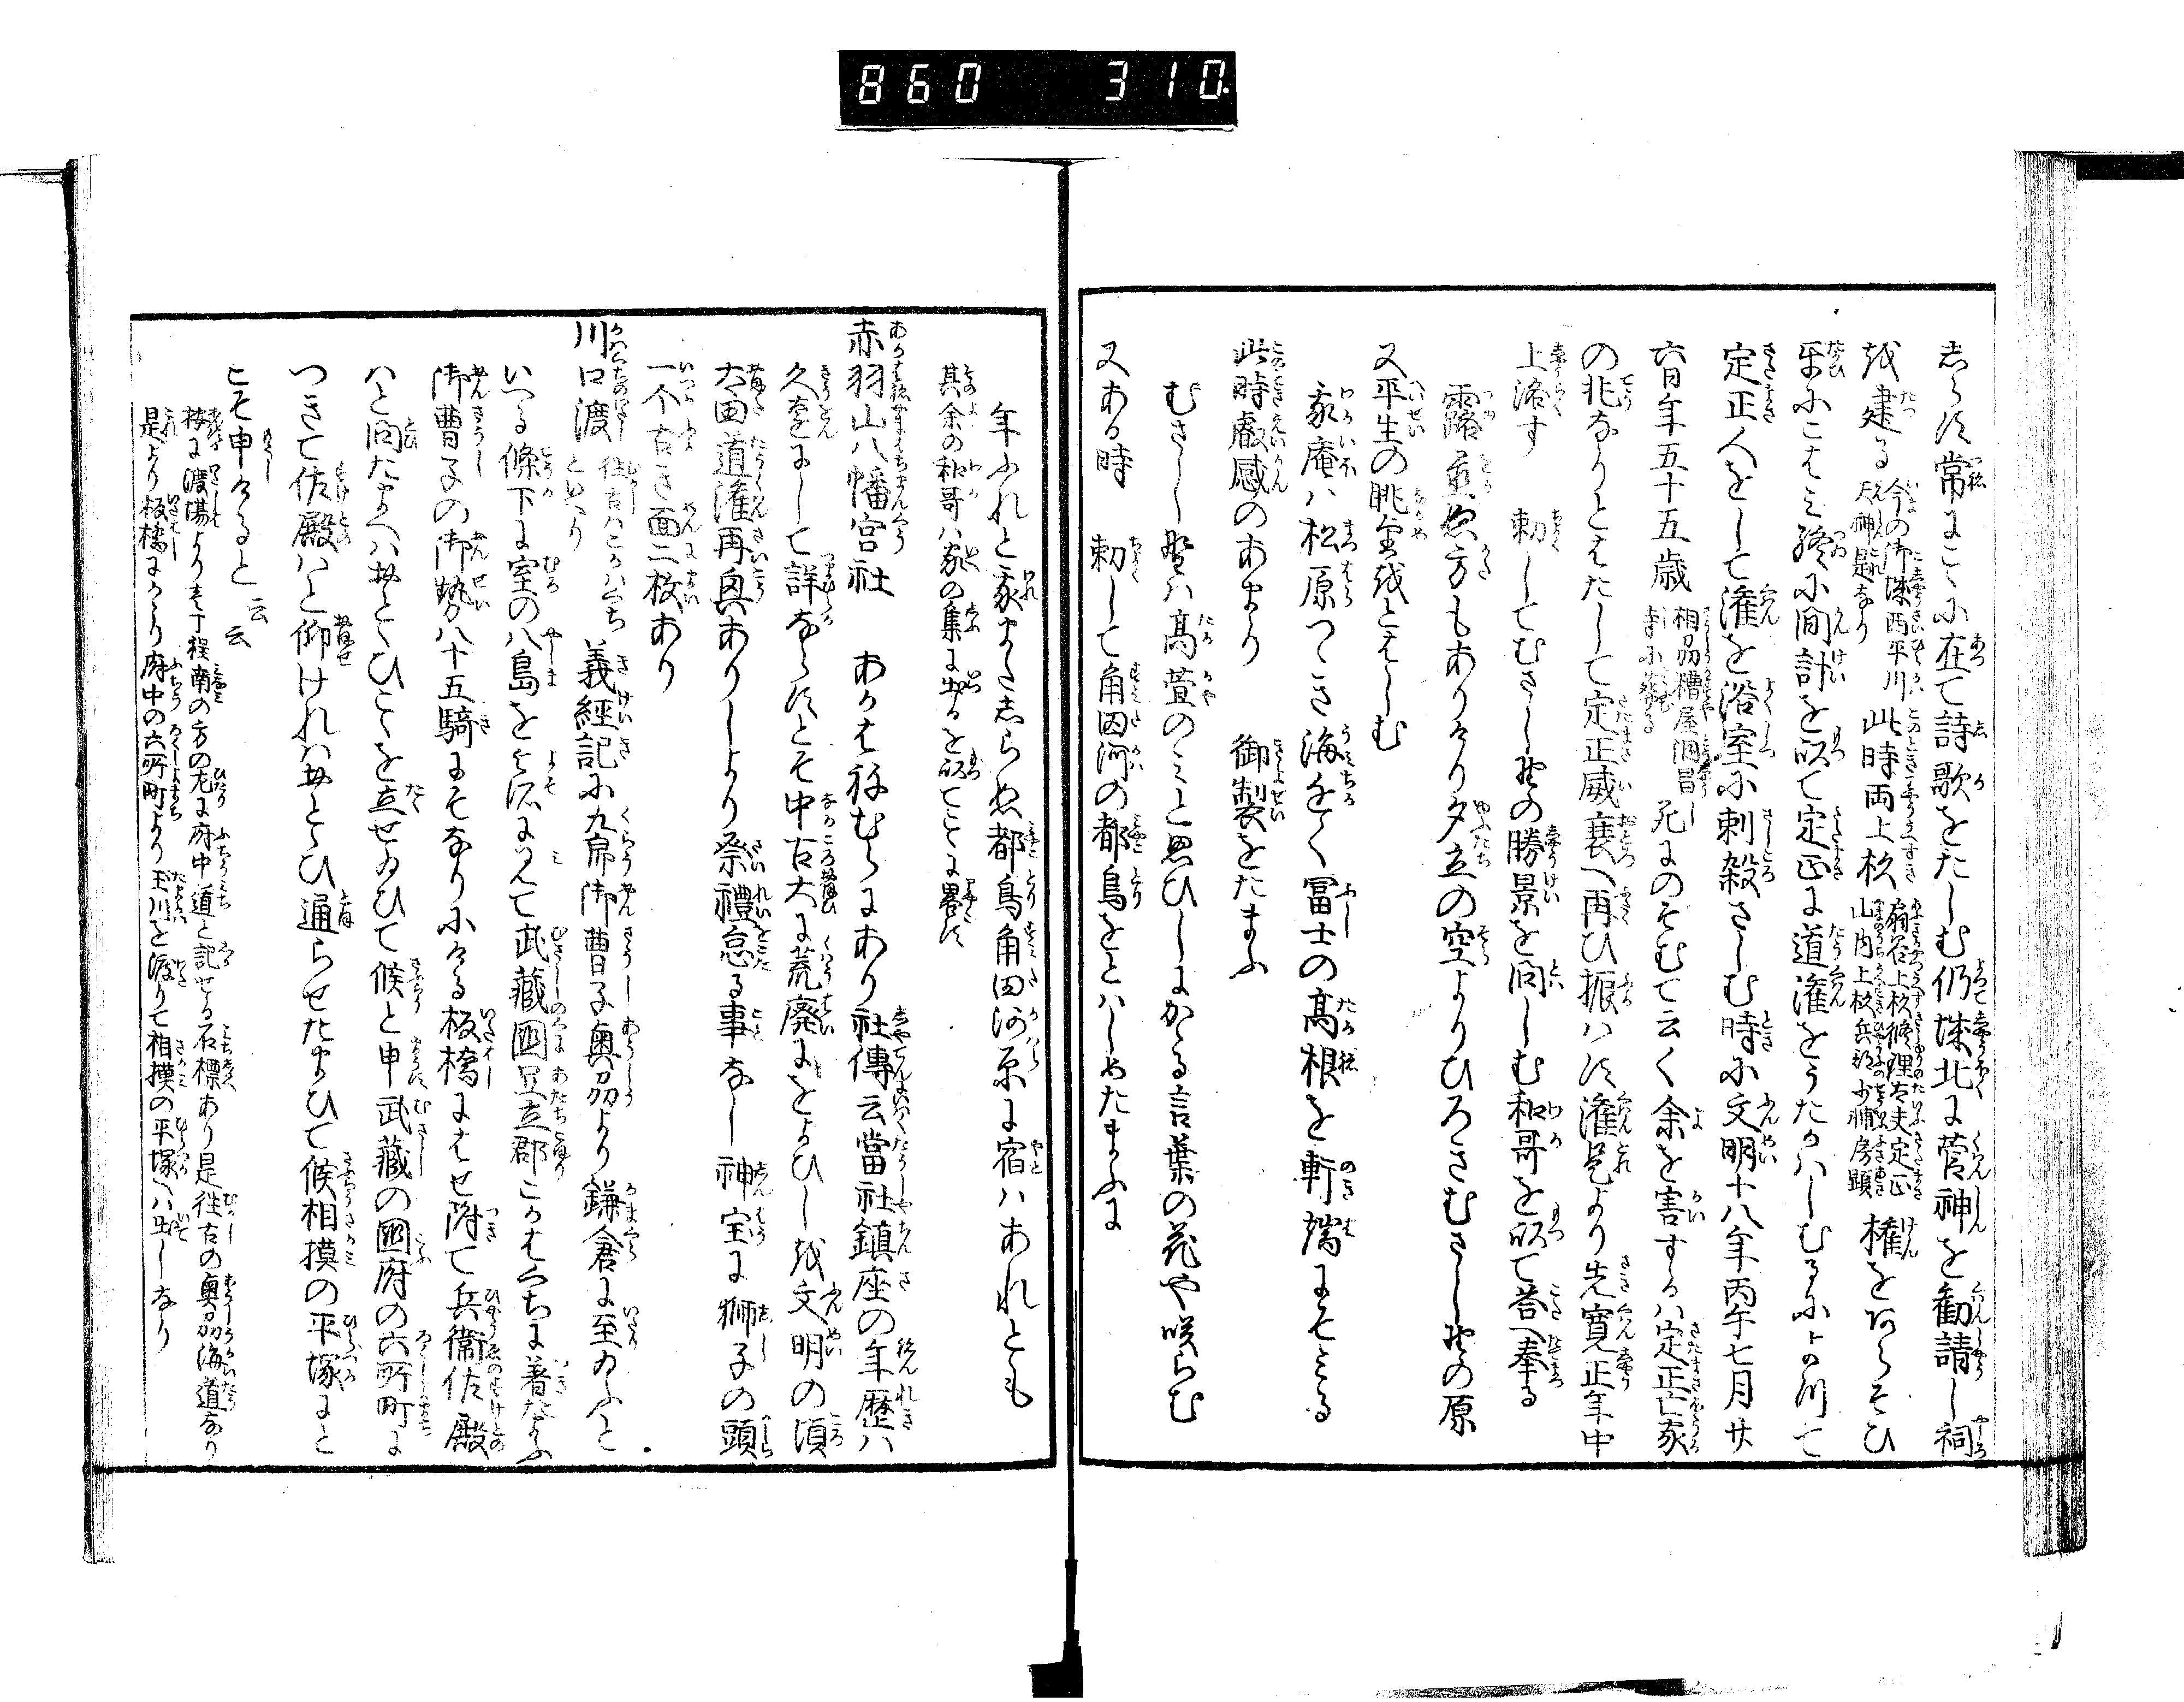 860 310
志らす常にこゝに在て詩歌をたしむ仍城北に菅神を勧請し祠
を建る 今の御城西平川天神是なり 此時両上杦 扇谷上杦修理大夫定正山内上杦兵部少輔房顕 権をあらそひ
互にこはみ終に間計を以て定正に道灌をうたかはしむるによつて
定正人をして潅を浴室に刺殺さしむ時に文明十八年丙午七月廿
六日年五十五歳 相刕糟屋洞昌寺に葬る 死にのそむて云く余を害するハ定正亡家
の兆なりとはたして定正威衰へ再ひ振ハす潅是より先寛正年中
上洛す 勅してむさし野の勝景を問しむ和哥を以て答へ奉る
露置ぬ方もありけり夕立の空よりひろきむさし野の原
又平生の眺望をとはしむ
我庵ハ松原つゝき海近く冨士の髙根を軒端にそみる
此時叡感のあまり 御製をたまふ
むさし野ハ髙萱のみと思ひしにかゝる言葉の花や咲らむ
又ある時 勅して角田河の都鳥をとハしめたまふに
年ふれと我またしらぬ都鳥角田河原に宿ハあれとも
其余の和哥ハ家の集に出るを以てこゝに畧す
赤羽山八幡宮社 あかはねむらにあり社傳云當社鎮座の年歴ハ
久遠にして詳ならすとそ中古大に荒廃におよひしを文明の頃
太田道潅再興ありしより祭禮怠る事なし神宝に獅子の頭
一个古き面二枚あり
川口渡 往古ハこかハくちといへり 義經記に九郎御曹子奥刕より鎌倉に至ゐふと
いへる條下に室の八島をよそに見て武藏國足立郡こかはくちに着たまふ
御曹子の御勢八十五騎にそなりにける板橋にはせ附て兵衛佐殿
ハと問たまへハおとゝひこゝを立せゐひて候と申武藏の國府の六所町に
つきて佐殿ハと仰けれハおとゝひ通らせたまひて候相摸の平塚にと
こそ申けると云云
按に渡場より壱丁程南の方の左に府中道と記せる石標あり是往古の奥刕海道なり
是より板橋にかゝり府中の六所町より玉川を渡りて相摸の平塚へハ出しなり